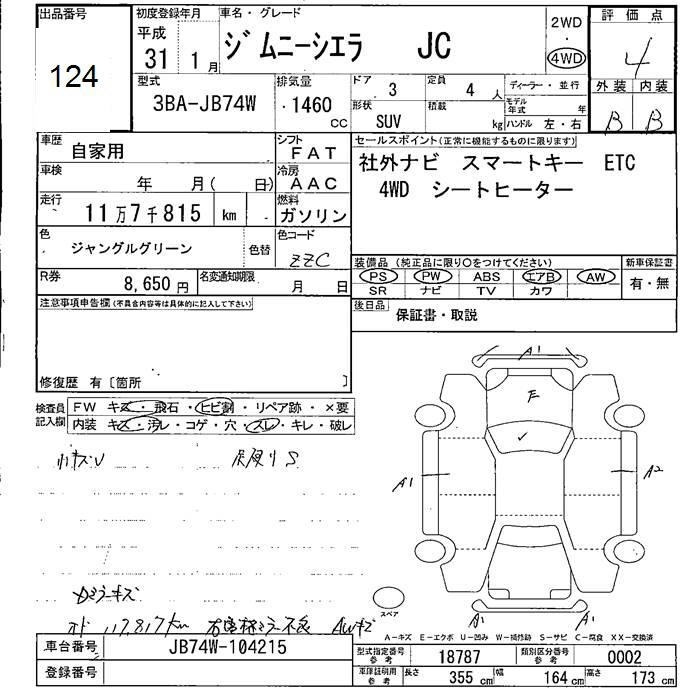 出品番号 初度登録年月 車名・グレード 2WD 評価点
124 平成 31 1月 ジムニーシエラ JC ・ 4WD 4
型式 排気量 ドア 3 定員 4 人 ディーラー・並行 外装 内装
3BA-JB74W 1460 CC 形状 SUV 積載 kg モデル年式 年 ハンドル 左・右 B B
車歴 自家用 シフト FAT セールスポイント(正常に機能するものに限ります)
車検 年 月( 日) 冷房 AAC 社外ナビ スマートキー ETC
走行 11万7千815 km 燃料 ガソリン 4WD シートヒーター
色 ジャングルグリーン 色替 色コード ZZC
装備品(純正品に限り○をつけてください) 新車保証書
R券 8,650円 名変通知期限 月 日 PS PW ABS エアB AW 有・無
SR ナビ TV カワ
注意事項申告欄(不具合内容等は具体的に記入して下さい) 後日品 保証書・取説
修復歴 有〔箇所 〕
検査員記入欄 FW キズ・飛石・ヒビ割・リペア跡・×要
内装 キズ・汚レ・コゲ・穴・スレ・キレ・破レ
A1
E
小キズU S
A1 A2
スペア
A1 A1
117,817km AWキズ
A-キズ E-エクボ U-凹み W-補修跡 S-サビ C-腐食 XX-交換済
車台番号 JB74W-104215 型式指定番号 参考 18787 類別区分番号 参考 0002
登録番号 車庫証明用 参考 長さ 355 cm 幅 164 cm 高さ 173 cm